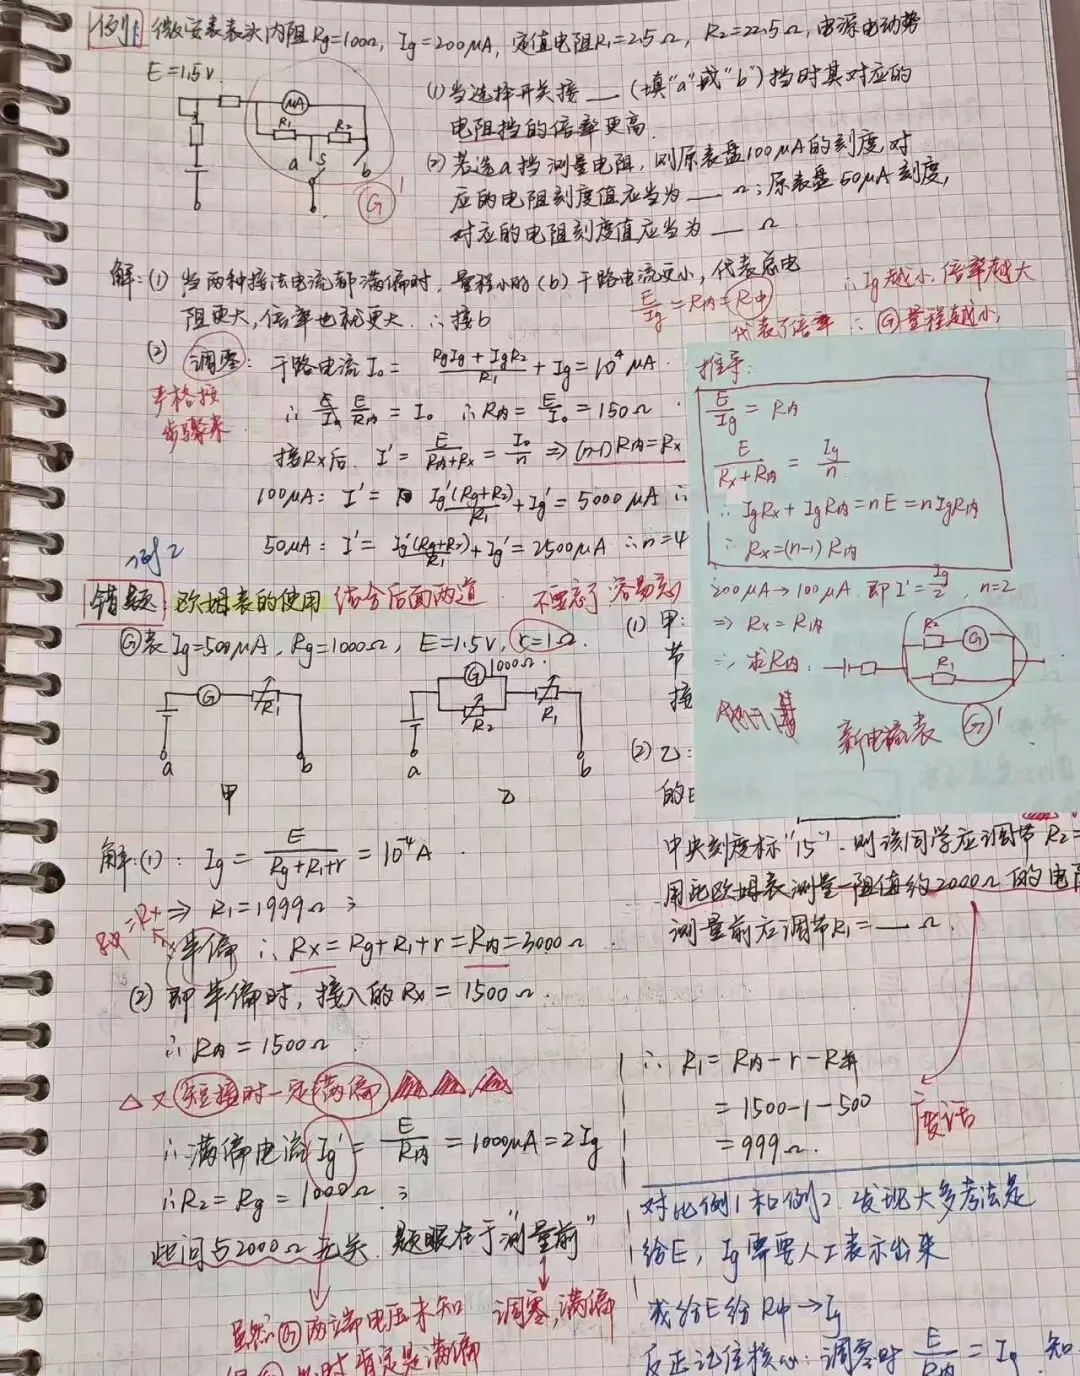 例1 微安表表头内阻Rg=100Ω, Ig=200μA, 定值电阻R₁=2.5Ω, R₂=22.5Ω, 电源电动势
E=1.5V.
μA
R₁
R₂
a
S
b
G'
(1)当选择开关接 ___ (填"a"或"b")挡时其对应的
电阻挡的倍率更高.
(2)若选a挡测量电阻, 则原表盘100μA的刻度,对
应的电阻刻度值应当为 ___ Ω;原表盘50μA刻度,
对应的电阻刻度值应当为 ___ Ω
解:(1) 当两种接法电流都满偏时, 量程小的(b)干路电流更小, 代表总电
阻更大, 倍率也就更大. ∴接b
E/Ig=R内=R中
代表了倍率
∴Ig越小, 倍率越大
∴G量程越小,
(2) 调零: 干路电流I₀= (RgIg+IgR₂)/R₁ + Ig=10⁴μA.
严格按
步骤来
∴ E/R内 = I₀ ∴R内= E/I₀ =150Ω
接Rx后. I'= E/(R内+Rx) = I₀/n ⇒(n-1)R内=Rx
100μA: I'= Ig'(Rg+R₂)/R₁ + Ig'=5000μA ∴
50μA: I'= Ig'(Rg+R₂)/R₁ + Ig'=2500μA ∴n=4
推导:
E/Ig = R内
E/(Rx+R内) = Ig/n
∴ IgRx+IgR内=nE=nIgR内
∴ Rx=(n-1)R内
200μA→100μA. 即I'=Ig/2, n=2
⇒ Rx=R内
∴求R内.
R₂
G
R₁
新电流表 G'
例2
错题: 欧姆表的使用 结合后面两道 不要忘了
G表Ig=500μA, Rg=1000Ω, E=1.5V, r=1Ω.
G
R₁
a
b
甲
G 1000Ω.
R₂
R₁
a
b
乙
(1) 甲:
节
接
(2) 乙:
的
中央刻度标"15". 则该同学应调节R₂=
用此欧姆表测量一阻值约2000Ω的电阻
测量前应调节R₁= ___ Ω.
解:(1): Ig= E/(Rg+R₁+r) =10⁻⁴A.
⇒ R₁=1999Ω;
半偏 ∴Rx=Rg+R₁+r=R内=3000Ω
(2) 即半偏时, 接入的Rx=1500Ω.
∴R内=1500Ω
△又短接时一定满偏
∴满偏电流Ig'= E/R内 =1000μA=2Ig
∴R₂=Rg=1000Ω;
此问与2000Ω无关. 题眼在于"测量前"
虽然G两端电压未知
调零, 满偏
此时肯定是满偏
∴ R₁=R内-r-R并
=1500-1-500
=999Ω.
废话
对比例1和例2. 发现大多考法是
给E, Ig需要人工表示出来
或给E给R中→Ig
反正记住核心: 调零时 E/R内 = Ig 知